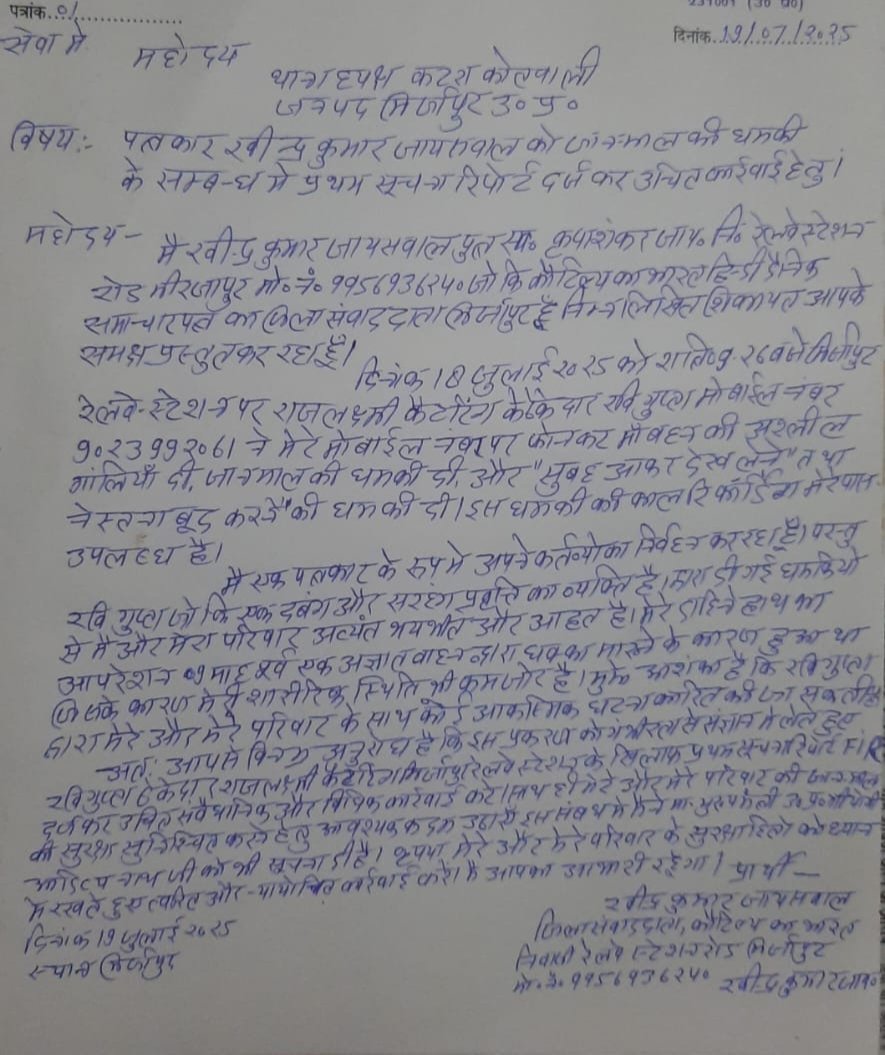 पत्रांक 01
231001 (उ0 प्र0)
दिनांक 19/07/2025
सेवा में
महोदय
थानाध्यक्ष कटरा कोतवाली
जनपद मिर्जापुर उ० प्र०
विषय:- पत्रकार रवीन्द्र कुमार जायसवाल को जानमाल की धमकी
के सम्बन्ध में प्रथम सूचना रिपोर्ट दर्ज कर उचित कार्रवाई हेतु।
महोदय - मैं रवीन्द्र कुमार जायसवाल पुत्र स्व० कृपाशंकर जाय० नि० रेलवे स्टेशन
रोड मीरजापुर मो० नं० 9956936240 जो कि कौटिल्य का भारत हिन्दी दैनिक
समाचार पत्र का जिला संवाददाता मिर्जापुर हूँ निम्नलिखित शिकायत आपके
समक्ष प्रस्तुत कर रहा हूँ।
दिनांक 18 जुलाई 2025 को रात्रि 9.26 बजे मिर्जापुर
रेलवे-स्टेशन पर राजलक्ष्मी कैटरिंग के ठेकेदार रवि गुप्ता मोबाईल नंबर
9023992061 ने मेरे मोबाईल नंबर पर फोन कर माँ बहन की अश्लील
गालियाँ दी, जानमाल की धमकी दी, और "सुबह आकर देख लेने" तथा
नेस्तनाबूद करने" की धमकी दी। इस धमकी की काल रिकॉर्डिंग मेरे पास
उपलब्ध है।
मैं एक पत्रकार के रूप में अपने कर्तव्यों का निर्वहन कर रहा हूँ। परन्तु
रवि गुप्ता जो कि एक दबंग और सरहंग प्रवृत्ति का व्यक्ति है। द्वारा दी गई धमकियों
से मैं और मेरा परिवार अत्यंत भयभीत और आहत है। मेरे दाहिने हाथ का
आपरेशन 09 माह पूर्व एक अज्ञात वाहन द्वारा धक्का मारने के कारण हुआ था
जिसके कारण मेरी शारीरिक स्थिति भी कमजोर है। मुझे आशंका है कि रवि गुप्ता
द्वारा मेरे और मेरे परिवार के साथ कोई आकस्मिक घटना कारित की जा सकती है
अतः आपसे विनम्र अनुरोध है कि इस प्रकरण को गंभीरता से संज्ञान में लेते हुए
रवि गुप्ता ठेकेदार राजलक्ष्मी कैटरिंग मिर्जापुर रेलवे स्टेशन के खिलाफ प्रथम सूचना रिपोर्ट FIR
दर्ज कर उचित संवैधानिक और विधिक कार्रवाई करें। साथ ही मेरे और मेरे परिवार की जानमाल
की सुरक्षा सुनिश्चित करने हेतु आवश्यक कदम उठाएं इस संबंध में मैंने मा० मुख्यमंत्री उ० प्र० योगी
आदित्य नाथ जी को भी सूचना दी है। कृपया मेरे और मेरे परिवार के सुरक्षा हितों को ध्यान
में रखते हुए त्वरित और न्यायोचित कार्रवाई करें। मैं आपका आभारी रहूँगा। प्रार्थी -
रवीन्द्र कुमार जायसवाल
दिनांक 19 जुलाई 2025
जिला संवाददाता, कौटिल्य का भारत
स्थान मिर्जापुर
निवासी रेलवे स्टेशन रोड मिर्जापुर
मो० नं० 9956936240 रवीन्द्र कुमार जाय०